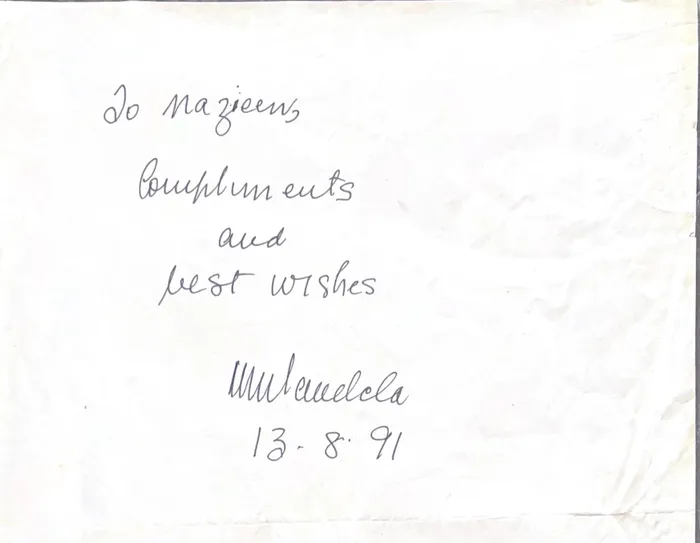 To Nazieem,
Compliments
and
best wishes
NMandela
13.8.91